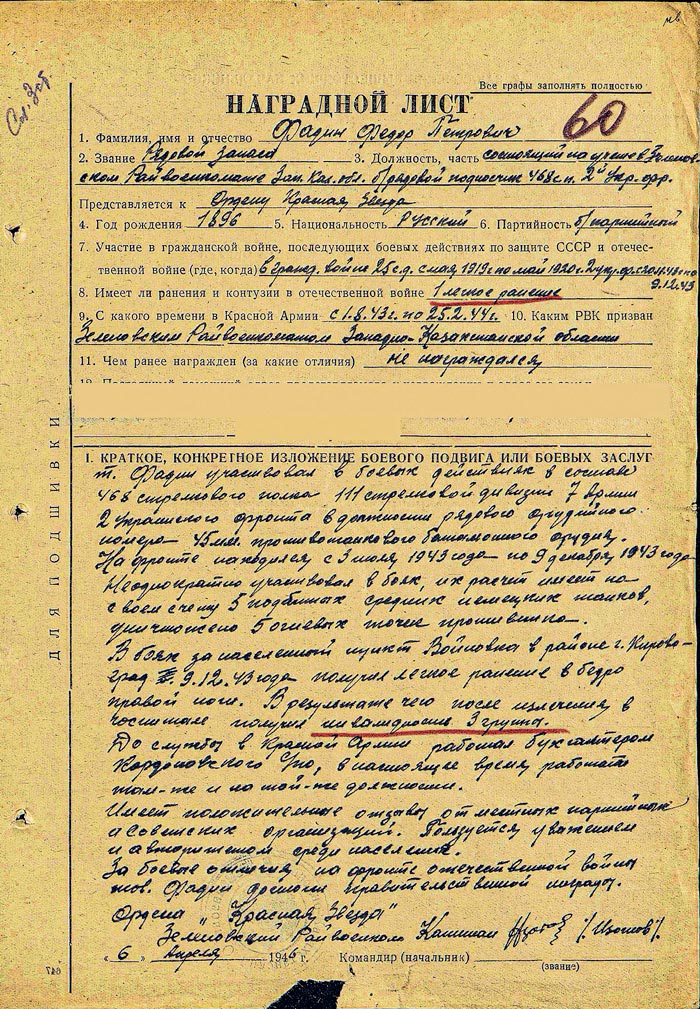 Сл. Заб.
Все графы заполнять полностью
НАГРАДНОЙ ЛИСТ
60
1. Фамилия, имя и отчество Фадин Федор Петрович
2. Звание Рядовой запаса 3. Должность, часть состоящий на учете в Зеленов-
ском Райвоенкомате Зап. Каз. обл. б/рядовой подносчик 468 с.п. 2й Укр. фр.
Представляется к Ордену Красная Звезда
4. Год рождения 1896 5. Национальность Русский 6. Партийность б/партийный
7. Участие в гражданской войне, последующих боевых действиях по защите СССР и отечес-
твенной войне (где, когда) в гражд. войне 25 с.д. с мая 1919г по май 1920г. 2 укр. фр. с 20.11.43г по
9.12.43
8. Имеет ли ранения и контузии в отечественной войне 1 легкое ранение
9. С какого времени в Красной Армии с 1.8.43г. по 25.2.44г. 10. Каким РВК призван
Зеленовским Райвоенкоматом Западно-Казахстанской области
11. Чем ранее награжден (за какие отличия) не награждался
ДЛЯ ПОДШИВКИ
I. КРАТКОЕ, КОНКРЕТНОЕ ИЗЛОЖЕНИЕ БОЕВОГО ПОДВИГА ИЛИ БОЕВЫХ ЗАСЛУГ
т. Фадин участвовал в боевых действиях в составе
468 стрелкового полка 111 стрелковой дивизии 7 Армии
2 Украинского фронта в должности рядового орудийного
номера 45 мм. противотанкового батальонного орудия.
На фронте находился с 3 июля 1943 года по 9 декабря 1943 года
Неоднократно участвовал в боях, их расчет имеет на
своем счету 5 подбитых средних немецких танков,
уничтожено 5 огневых точек противника.
В боях за населенный пункт Войновка в районе г. Кирово-
град 9.12.43 года получил легкое ранение в бедро
правой ноги. В результате чего после излечения в
госпитале получил инвалидность 3 группы.
До службы в Красной Армии работал бухгалтером
в настоящее время работает
там-же и на той-же должности.
Имеет положительные отзывы от местных партийных
и Советских организаций. Пользуется уважением
и авторитетом среди населения.
За боевые отличия на фронте отечественной войны
тов. Фадин достоин правительственной награды.
Ордена „Красная Звезда"
Зеленовский Райвоенком Капитан /Изотов/.
„6" Апреля 1946 г. Командир (начальник)
(звание)
647